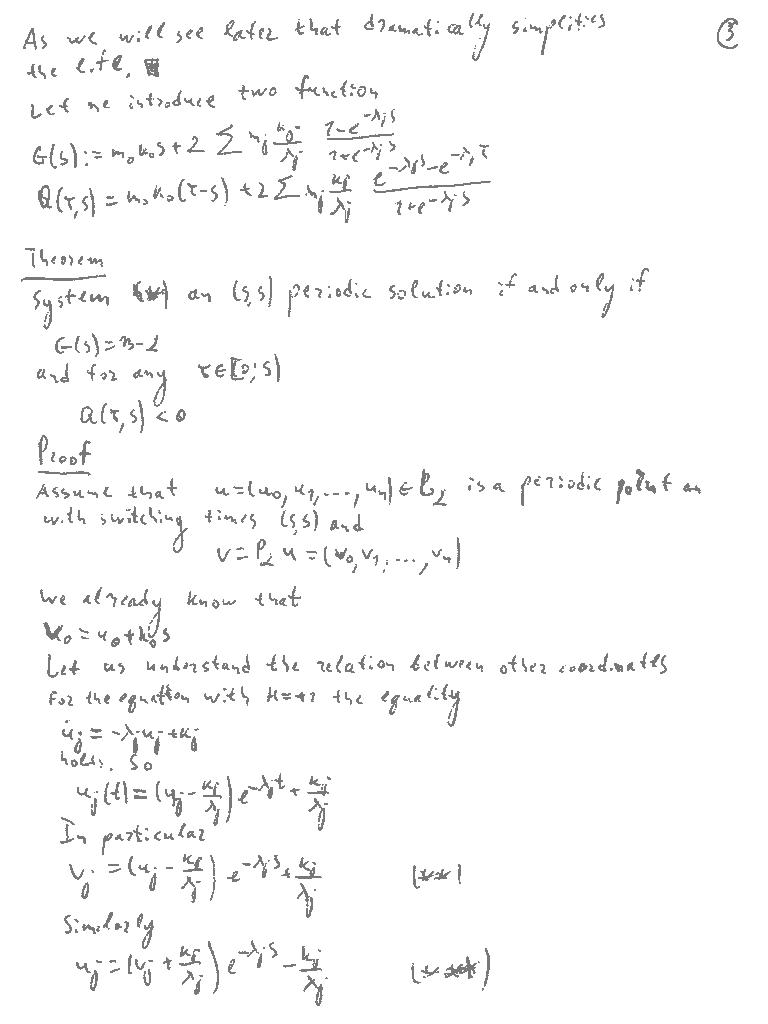 As we will see later that dramatically simplifies ③
the life.
Let me introduce two function
G(s) := m₀k₀s + 2 ∑ mⱼ kⱼ/λⱼ (1-e^{-λⱼs})/(1+e^{-λⱼs})
Q(τ,s) = m₀k₀(τ-s) + 2 ∑ mⱼ kⱼ/λⱼ (e^{-λⱼs}-e^{-λⱼτ})/(1+e^{-λⱼs})
Theorem
System (**) an (s,s) periodic solution if and only if
G(s) = β-α
and for any τ∈[0;s)
Q(τ,s) < 0
Proof
Assume that u=(u₀,u₁,...,uₙ) ∈ is a periodic point an
with switching times (s,s) and
v = P u = (v₀,v₁,...,vₙ)
We already know that
v₀ = u₀ + k₀s
Let us understand the relation between other coordinates
For the equation with the equality
u̇ⱼ = -λⱼuⱼ+kⱼ
holds. So
uⱼ(t) = (uⱼ - kⱼ/λⱼ) e^{-λⱼt} + kⱼ/λⱼ
In particular
vⱼ = (uⱼ - kⱼ/λⱼ) e^{-λⱼs} + kⱼ/λⱼ (**)
Similarly
uⱼ = (vⱼ + kⱼ/λⱼ) e^{-λⱼs} - kⱼ/λⱼ (***)